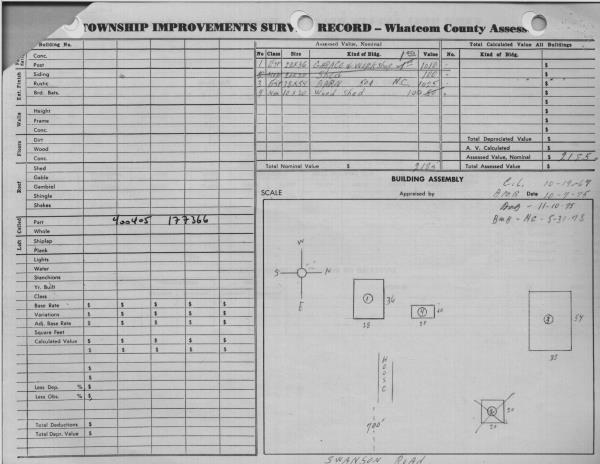 TOWNSHIP IMPROVEMENTS SURV RECORD – Whatcom County Assess
Building No.
Conc.
Post
Siding
Rustic
Brd. Bats.
Ext. Finish
Height
Frame
Conc.
Walls
Dirt
Wood
Conc.
Floors
Shed
Gable
Gambrel
Shingle
Shakes
Roof
Part 400405 177366
Whole
Shiplap
Plank
Loft Ceiled
Lights
Water
Stanchions
Yr. Built
Class
Base Rate $ $ $ $ $
Variations $ $ $ $ $
Adj. Base Rate $ $ $ $ $
Square Feet
Calculated Value $ $ $ $ $
$ $ $ $ $
$
$
Less Dep. % $
Less Obs. % $
Total Deductions $
Total Depr. Value $
Assessed Value, Nominal
No Class Size Kind of Bldg. Value
1 28X36 GARAGE & WORKSHOP 1010
Shed 100
3 BARN N.C. 1075
4 10X20 Wood Shed 100
Total Nominal Value $ 2185
Total Calculated Value All Buildings
No. Kind of Bldg.
$
$
$
$
$
$
$
$
Total Depreciated Value $
A. V. Calculated $
Assessed Value, Nominal $ 2185
Total Assessed Value $
BUILDING ASSEMBLY
SCALE
Appraised by
C.L. 10-19-67
Date 10-9-75
11-10-75
W
S N
E
1 36
28
4
20
3 54
35
HOUSE
20
20
700'
SWANSON ROAD